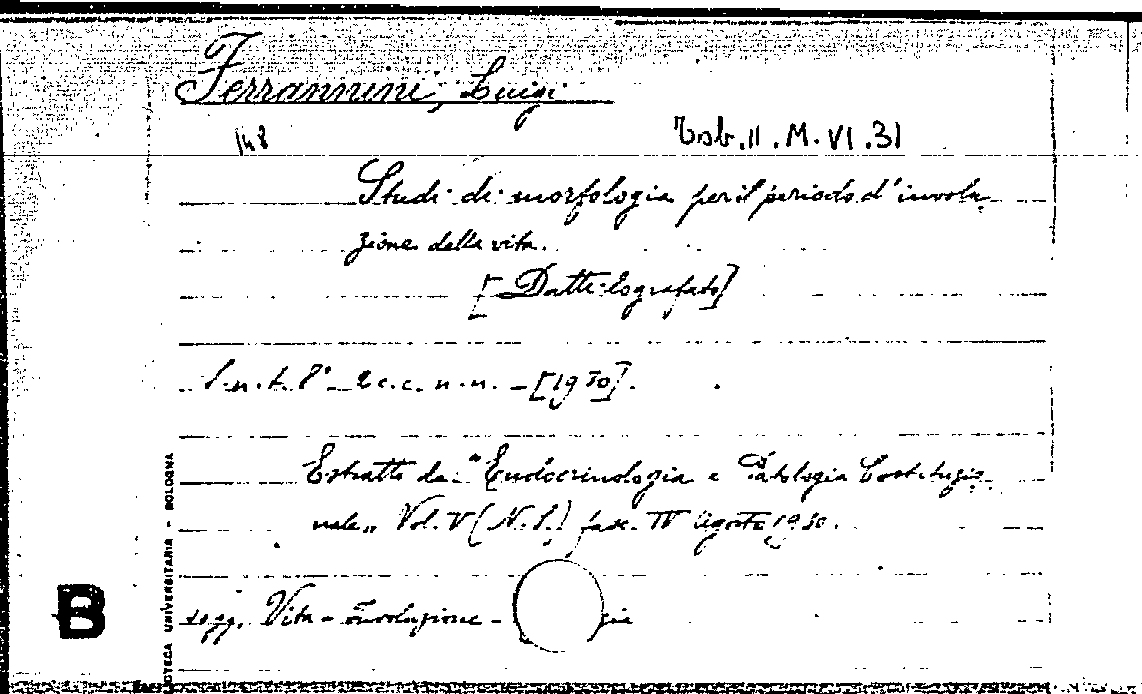 Ferrannini, Luigi
148
Tab. II. M. VI. 31
Studi di morfologia per il periodo d'involu-
zione della vita.
[Dattilografato]
S. n. t. 8° 2 c. c. n. n. - [1930].
Estratto da "Endocrinologia e Patologia Costituzio-
nale„ Vol. V (N. S.) fasc. IV Agosto 1930.
sogg. Vita - Involuzione - gia
B
OTECA UNIVERSITARIA - BOLOGNA